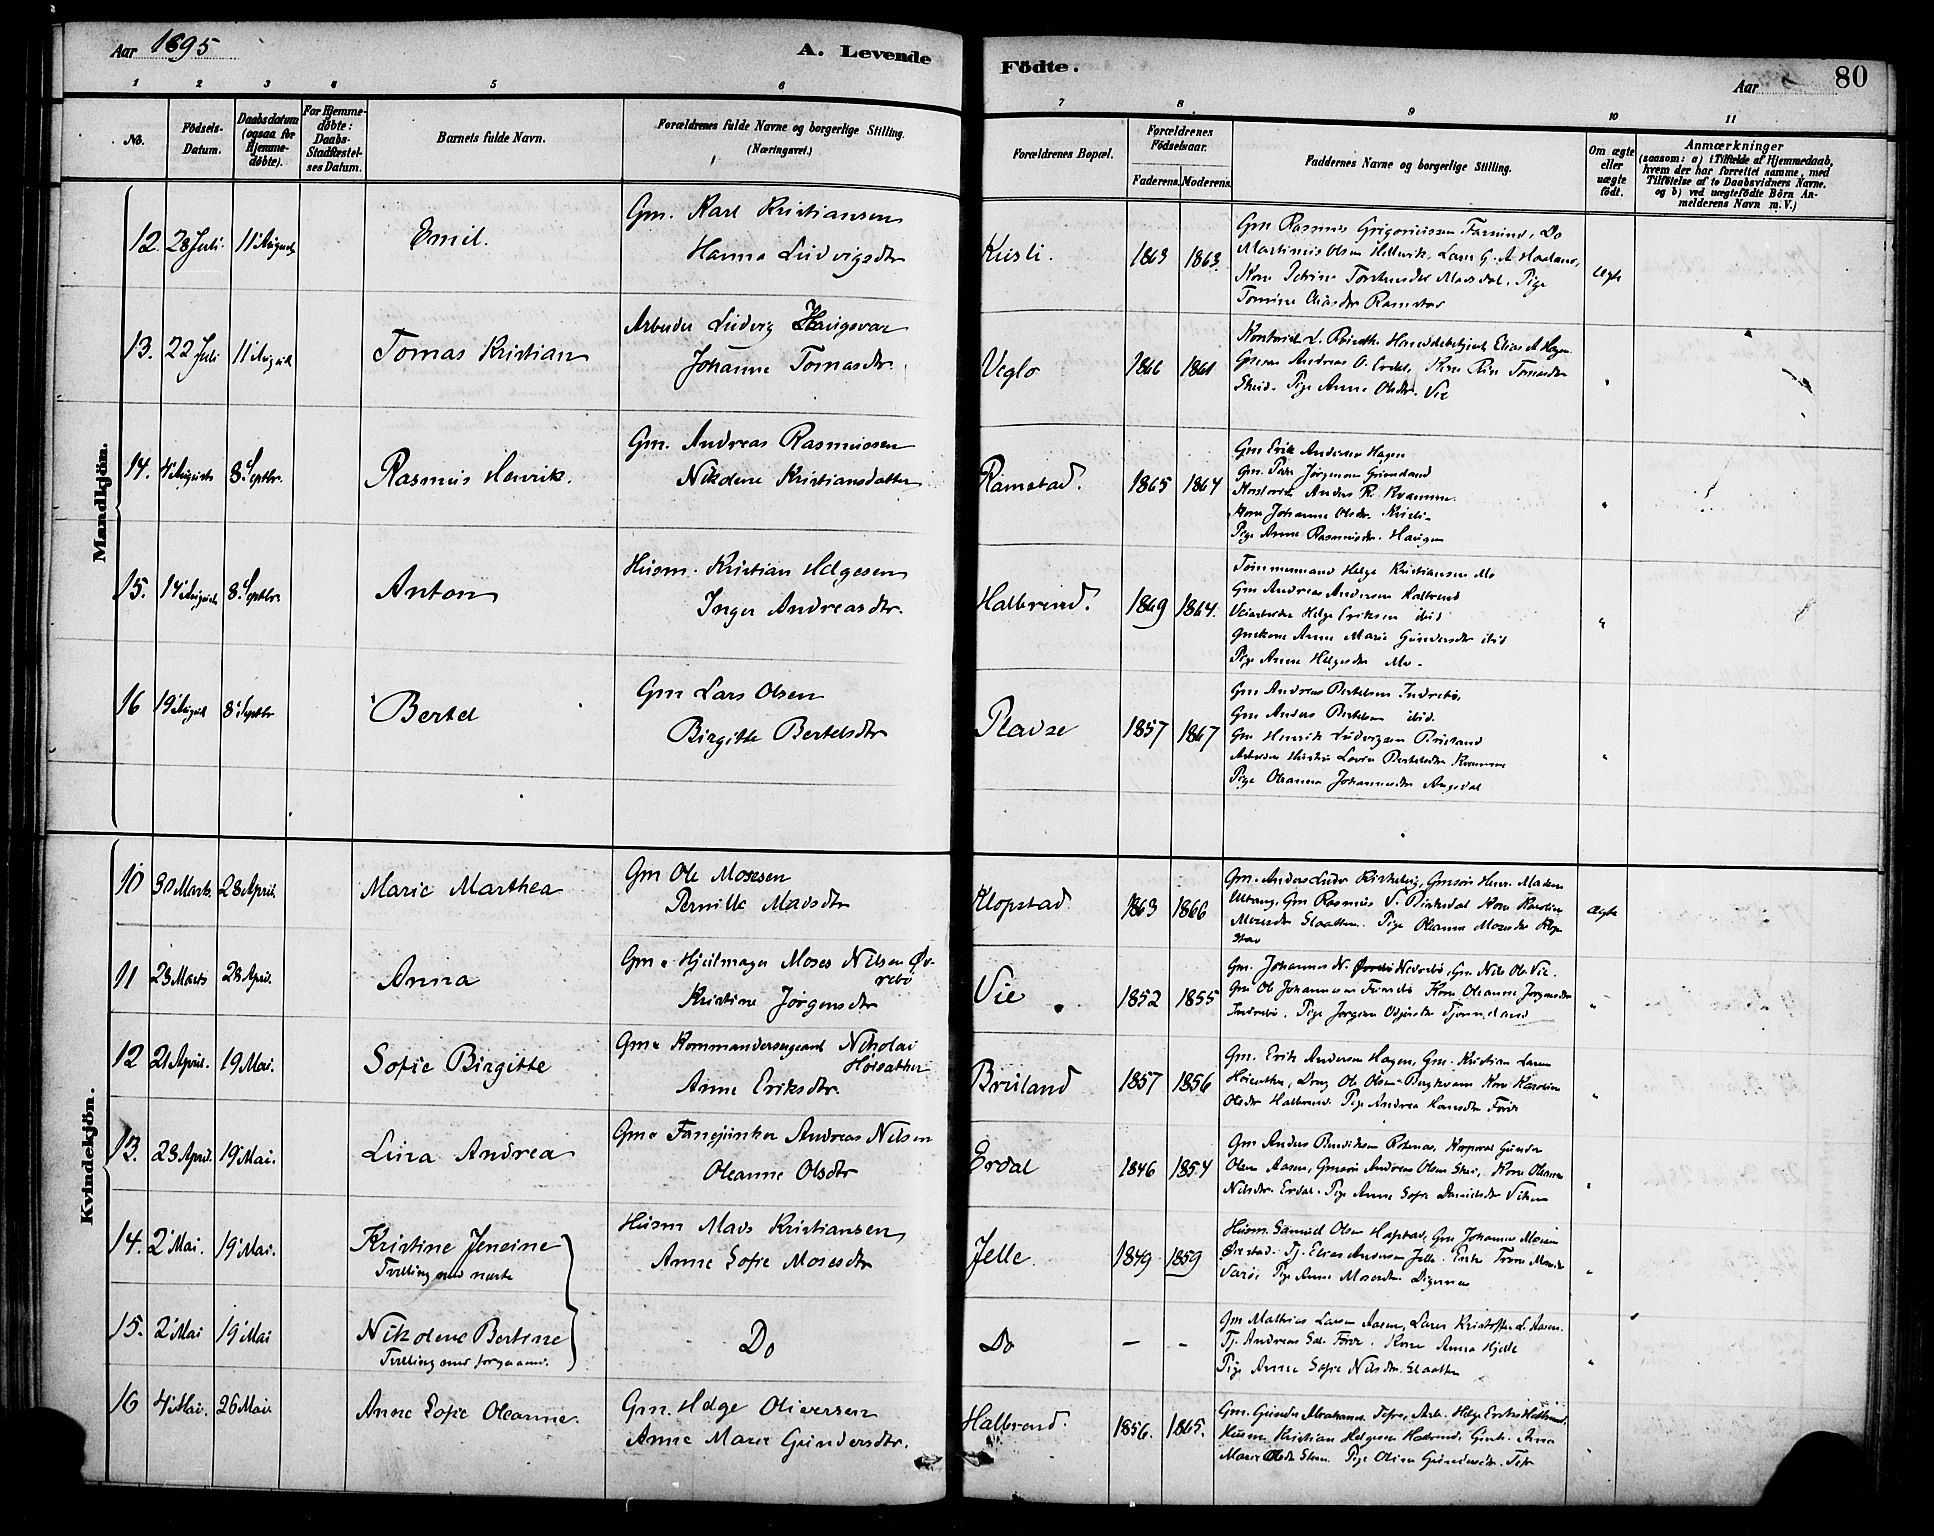 Aar 1895
A. Levende
Födte.
Aar
80
1 2 3 4 5 6
7 8 9 10 11
No.
Födsels-
Datum.
Daabsdatum
(ogsaa for
Hjemme-
döbte).
For Hjemme-
döbte:
Daabs-
Stadfæstel-
ses Datum.
Barnets fulde Navn.
Forældrenes fulde Navne og borgerlige Stilling.
(Næringsvei.)
Forældrenes Bopæl.
Forældrenes
Födselsaar.
Faderens. Moderens.
Faddernes Navne og borgerlige Stilling.
Om ægte
eller
uægte
födt.
Anmærkninger
(saasom: a) i Tilfælde af Hjemmedaab,
hvem der har forrettet samme, med
Tilföielse af to Daabsvidners Navne.
og b) ved uægtefödte Börn An-
melderens Navn m. V.)
Mandkjön.
12. 28 Juli. 11 August Emil.
Gm. Karl Kristiansen
Hanna Ludvigsdtr
Kusli. 1863 1863.
Gm Rasmus Grigoriussen Farsund, Do
Martinus Olsen Hellevik, Lars G. A. Hovland,
Kone Torstensdtr Mausdal. Pige
Tomine Eliasdtr Ramstad
Ægte
13. 22 Juli 11 August Tomas Kristian
Arbeider Ludvig Haugsvær
Johanne Tomasdtr.
Veglo 1866 1861
Elias A Hagen
Andreas O. Erdal, Kone Tomasdtr
Skud. Pige Anne Olsdtr. Vie
"
14. 4 August 8. Septbr. Rasmus Henrik.
Gm. Andreas Rasmussen
Nikoline Kristiansdatter
Ramstad. 1865 1864
Gm Erik Andersen Hagen
Gm. Peder Jørgensen Grimeland
Anders R. Kvamme.
Kone Johanne Olsdtr. Kusli
Pige Anne Rasmusdtr. Haugen
"
15. 14 August 8. Septbr. Anton
Husm. Kristian Helgesen
Inger Andreasdtr.
Halbrend. 1869 1864.
Tømmermand Helge Kristiansen Mo
Gm Andreas Andersen Halbrend
Helge Eriksen ibid
Gmkone Anne Marie Gundersdtr ibid
Pige Anne Helgesdtr Mo.
"
16 19 August 8 Septbr Bertel
Gm Lars Olsen
Birgitte Bertelsdtr
Ravse 1857 1867
Gm Andreas Bertelsen Indrebø,
Gm Anders Bertelsen ibid.
Gm Henrik Ludvigsen Bruland
Arbeider Bertelsdtr Kvamme
Pige Oleanna Johannesdtr Angedal
"
Kvindekjön.
10 30 Marts. 28 April. Marie Marthea
Gm Ole Mosesen
Pernille Madsdtr
Klopstad 1863 1866
Gm. Anders Birkeland, Gmsøn Henr. Madsen
Gm Rasmus Birkedal Kone Karoline
Mosesdtr Slaatten. Pige Oleanna Mosesdtr Klop
stad
Ægte
11 23 Marts 28 April. Anna
Gm. Hjulmager Moses Nilsen Øv-
rebø
Kristine Jørgensdtr
Vie. 1852 1855
Gm. Johannes N. Nedrebø, Gm Nils Ols. Vie.
Gm Ole Johannesen Kone Oleanne Jørgensdtr
Indrebø. Pige Jørgine
"
12 21 April. 19 Mai. Sofie Birgitte
Gm. Kommandersergeant Nikolai
Høisæther
Anne Eriksdtr.
Bruland 1857 1856
Gm. Erik Andersen Hagen, Gm. Kristian Larsen
Høisæther, Dreng Ole Olsen Bergkvam Kone Karoline
Olsdtr Halbrend. Pige Andrea Hansdtr Førde
"
13. 23 April. 19 Mai. Lina Andrea
Gm. Fanejunker Andreas Nilsen
Oleanne Olsdtr
Erdal 1846 1854
Gm Anders Bendiksen Korporal Gunder
Olsen Aasen, Gmsøn Andreas Olsen Skei, Kone Oleanne
Nilsdtr. Erdal. Pige Anne Sofie Danielsdtr Viken
"
14. 2 Mai. 19 Mai. Kristine Jeneine
Tvilling med næste
Husm Mads Kristiansen
Anne Sofie Mosesdtr
Jelle. 1849 1859
Husm. Samuel Olsen Hafstad, Gm Johannes Mosesen
Tj. Elias Andersen Jelle. Enke
Pige Anne Mosesdtr. Digernes
"
15. 2 Mai 19 Mai Nikoline Bertine
Tvilling med forgaaende.
Do
Do - -
Gm Mathias Larsen Aasen, Lars Kristoffer L. Aasen.
Tj. Andreas Førde. Kone Anna Hjelle
Pige Anne Sofie Nilsdtr. Slaatten
"
16 4 Mai. 26 Mai Anne Sofie Oleanne.
Gm. Helge Oliversen
Anne Marie Gundersdtr.
Halbrend. 1856. 1865.
Gm. Gunder Abrahams. Tefre, Arb. Helge Eriks Halbrend,
Husm Kristian Helgesen Halbrend, Gmk. Anne
Marie Olsdtr Steen. Pige Olina Gundersdtr. Tefre
"